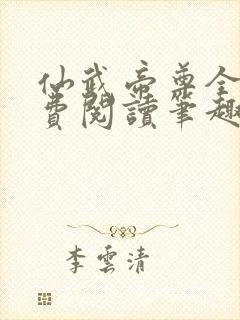 仙武帝尊全
費閱讀筆趣
李雲清